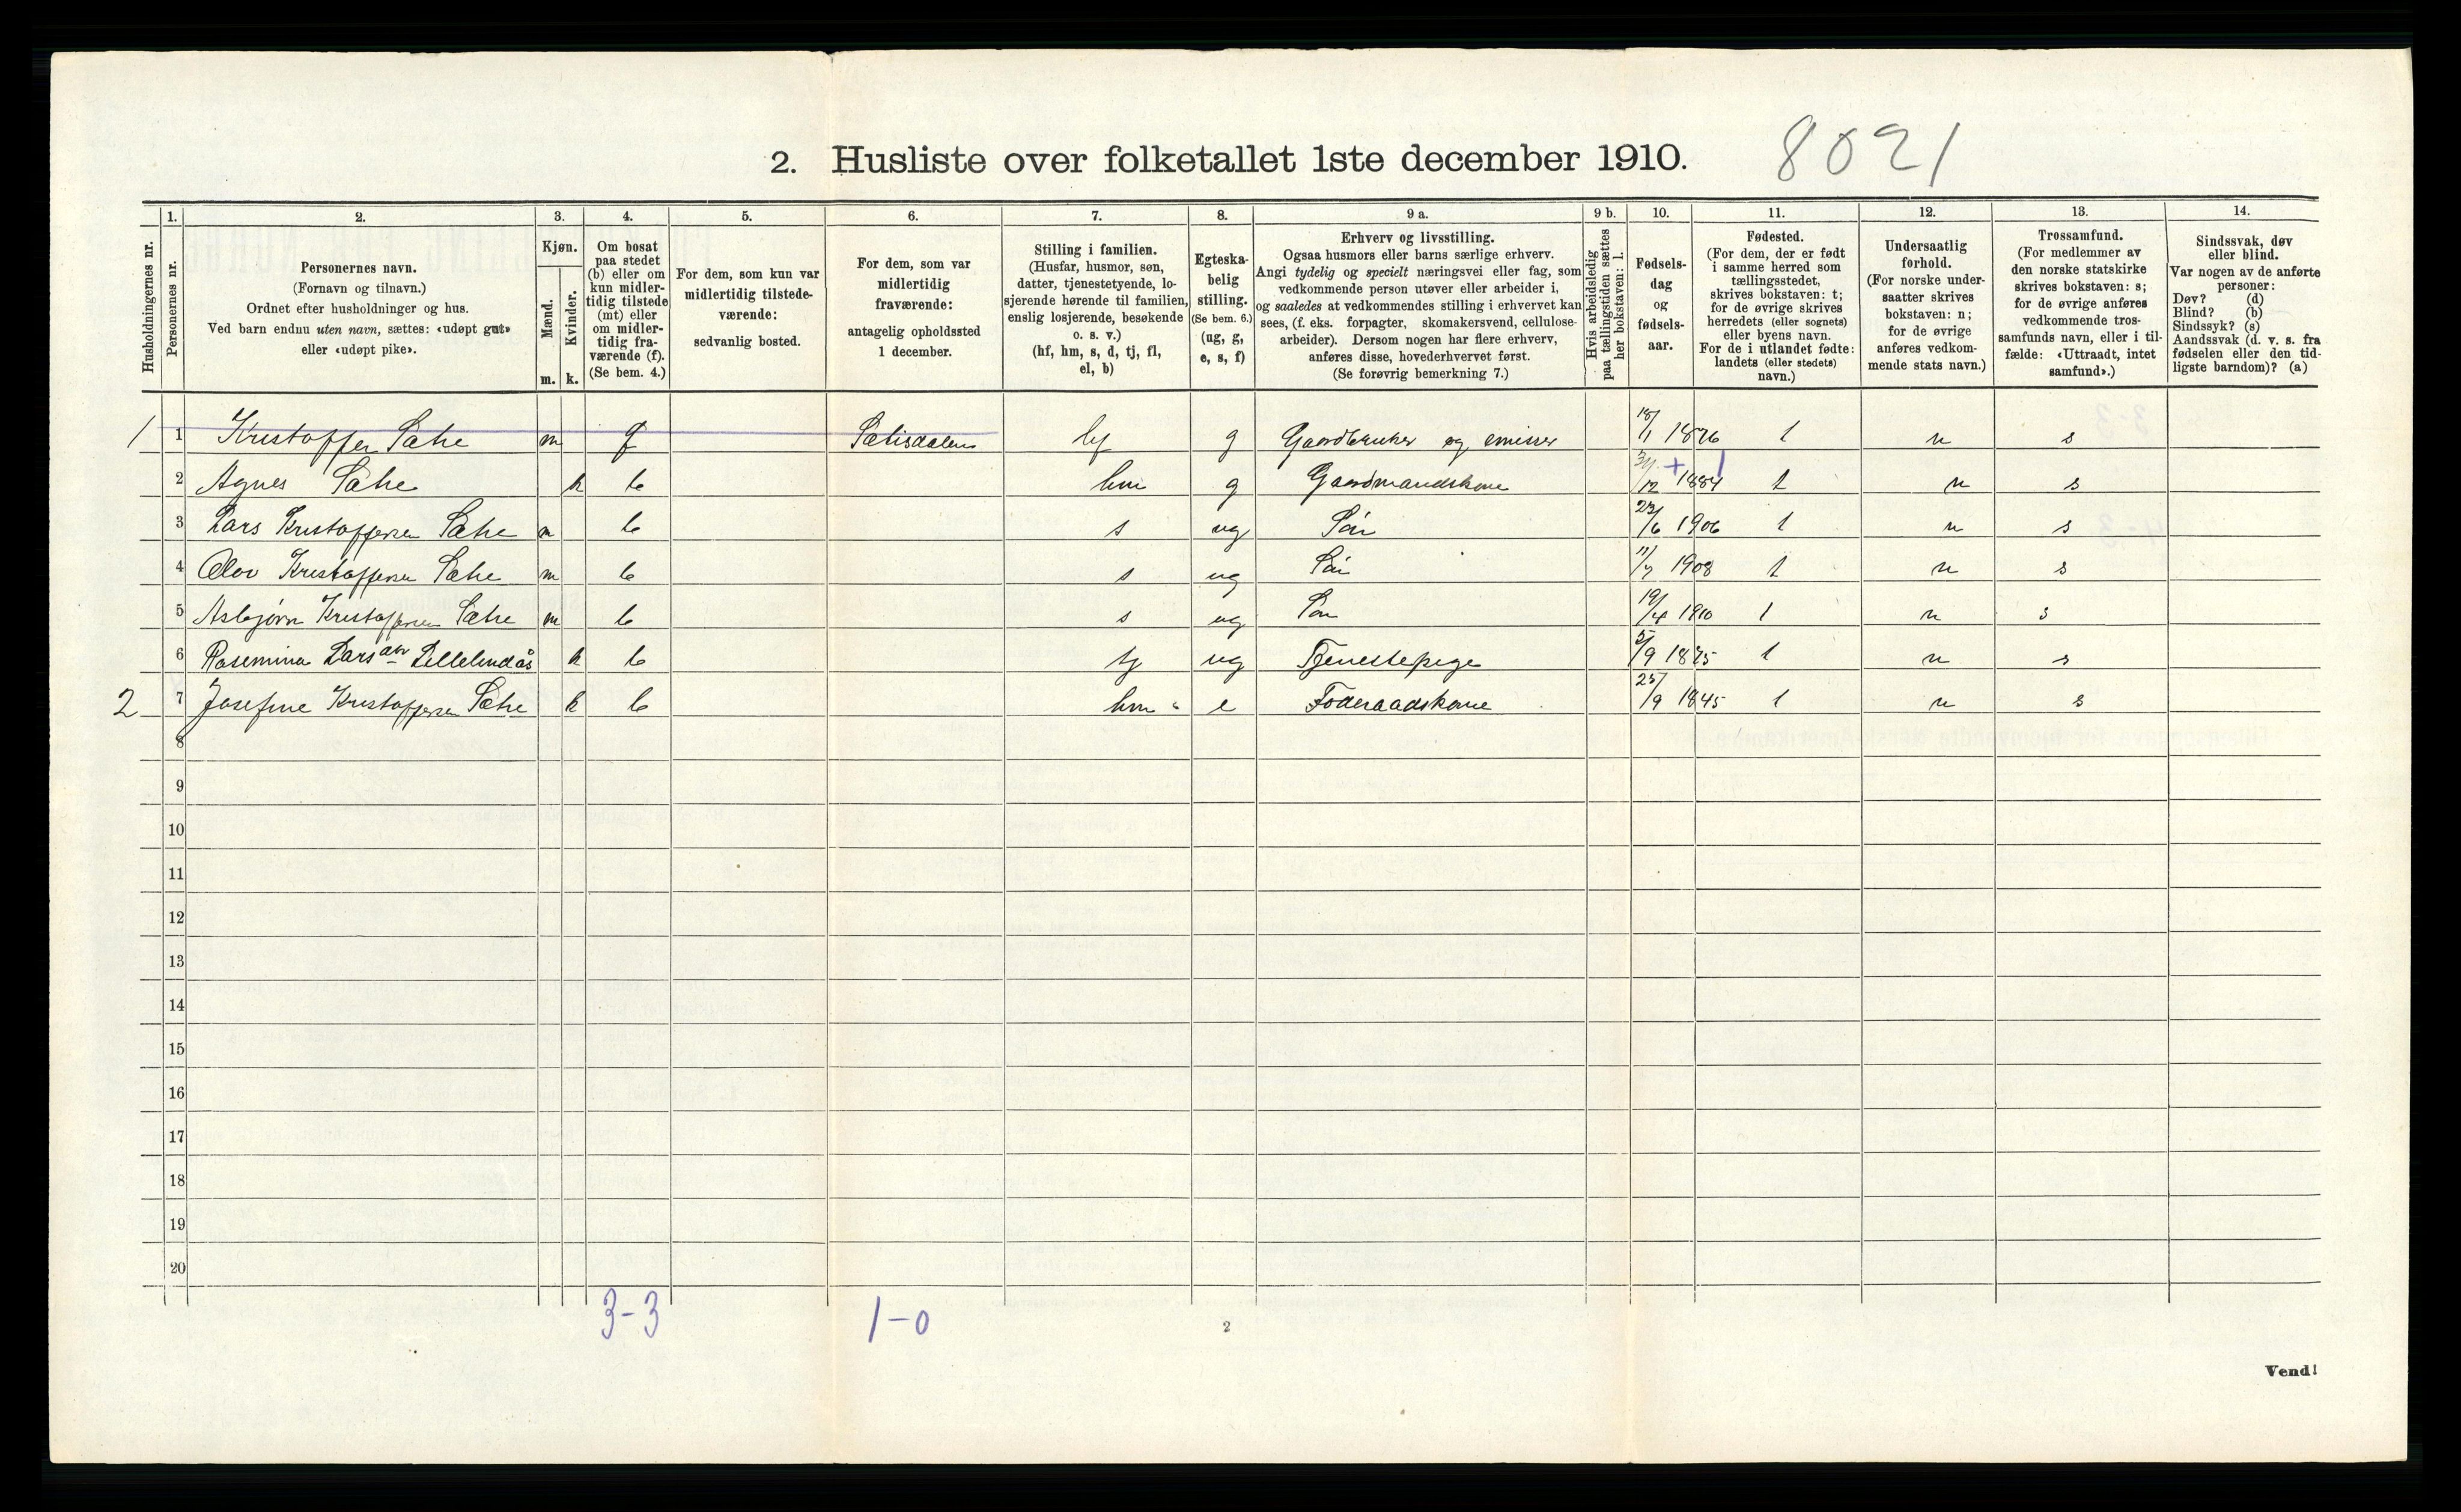 2. Husliste over folketallet 1ste december 1910. 8021
1. 2. 3. 4. 5. 6. 7. 8. 9 a. 9 b. 10. 11. 12. 13. 14.
Husholdningernes nr.
Personernes nr.
Personernes navn.
(Fornavn og tilnavn.)
Ordnet efter husholdninger og hus.
Ved barn endnu uten navn, sættes: «udøpt gut»
eller «udøpt pike».
Kjøn.
Mænd.
Kvinder.
m. k.
Om bosat
paa stedet
(b) eller om
kun midler-
tidig tilstede
(mt) eller
om midler-
tidig fra-
værende (f).
(Se bem. 4.)
For dem, som kun var
midlertidig tilstede-
værende:
sedvanlig bosted.
For dem, som var
midlertidig
fraværende:
antagelig opholdssted
1 december.
Stilling i familien.
(Husfar, husmor, søn,
datter, tjenestetyende, lo-
sjerende hørende til familien,
enslig losjerende, besøkende
o. s. v.)
(hf, hm, s, d, tj, fl,
el, b)
Egteska-
belig
stilling.
(Se bem. 6.)
(ug, g,
e, s, f)
Erhverv og livsstilling.
Ogsaa husmors eller barns særlige erhverv.
Angi tydelig og specielt næringsvei eller fag, som
vedkommende person utøver eller arbeider i,
og saaledes at vedkommendes stilling i erhvervet kan
sees, (f. eks. forpagter, skomakersvend, cellulose-
arbeider). Dersom nogen har flere erhverv,
anføres disse, hovederhvervet først.
(Se forøvrig bemerkning 7.)
Hvis arbeidsledig
paa tællingstiden sættes
her bokstaven: l.
Fødsels-
dag
og
fødsels-
aar.
Fødested.
(For dem, der er født
i samme herred som
tællingsstedet,
skrives bokstaven: t;
for de øvrige skrives
herredets (eller sognets)
eller byens navn.
For de i utlandet fødte:
landets (eller stedets)
navn.)
Undersaatlig
forhold.
(For norske under-
saatter skrives
bokstaven: n;
for de øvrige
anføres vedkom-
mende stats navn.)
Trossamfund.
(For medlemmer av
den norske statskirke
skrives bokstaven: s;
for de øvrige anføres
vedkommende tros-
samfunds navn, eller i til-
fælde: «Uttraadt, intet
samfund».)
Sindssvak, døv
eller blind.
Var nogen av de anførte
personer:
Døv? (d)
Blind? (b)
Sindssyk? (s)
Aandssvak (d. v. s. fra
fødselen eller den tid-
ligste barndom)? (a)
1 1 Kristoffer Sætre m f Sætisdalen hf g Gaardbruker og emissær 18/1 1876 t n s
2 Agnes Sætre k b hm g Gaardmandskone 31/12 + 1884 1 t n s
3 Lars Kristoffersen Sætre m b s ug Søn 23/6 1906 t n s
4 Olav Kristoffersen Sætre m b s ug Søn 11/7 1908 t n s
5 Asbjørn Kristoffersen Sætre m b s ug Søn 19/4 1910 t n s
6 Rasemina Larsan Lillelindås k b tj ug Tjenestepige 5/9 1875 t n s
2 7 Josefine Kristoffersen Sætre k b hm e Føderaadskone 25/9 1845 t n s
8
9
10
11
12
13
14
15
16
17
18
19
20
3-3 1-0
2
Vend!